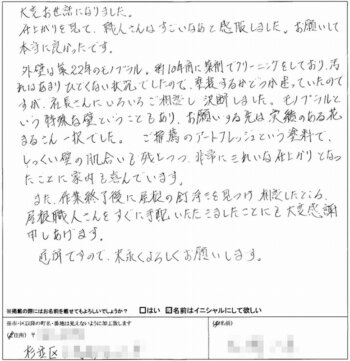 大変お世話になりました。
仕上がりを見て、職人さんはすごいなあと感服しました。お願いして
本当に良かったです。
外壁は築22年のモノプラル。約10年前に業者でクリーニングをしており、汚
れはあまりひどくない状況でしたので、塗装するかどうか迷っていたので
すが、花長さんにいろいろご相談し決断しました。モノプラルと
いう特殊な壁ということもあり、お願いする先は実績のある花
まるさん一択でした。 ご推薦のアートフレッシュという塗料で、
しっくい壁の風合いも残しつつ、非常にきれいな仕上がりとなっ
たことに家内も喜んでいます。
また、作業終了後に屋根の釘浮きを見つけ相談したところ、
屋根職人さんをすぐに手配いただきましたことにも大変感謝
申しあげます。
近所ですので、末永くよろしくお願いします。
※掲載の際にはお名前を載せてもよろしいでしょうか？ □はい ☑名前はイニシャルにして欲しい
※市・区以降の町名・番地は見えないように加工致します
ご住所) 〒
杉並区
お名前)